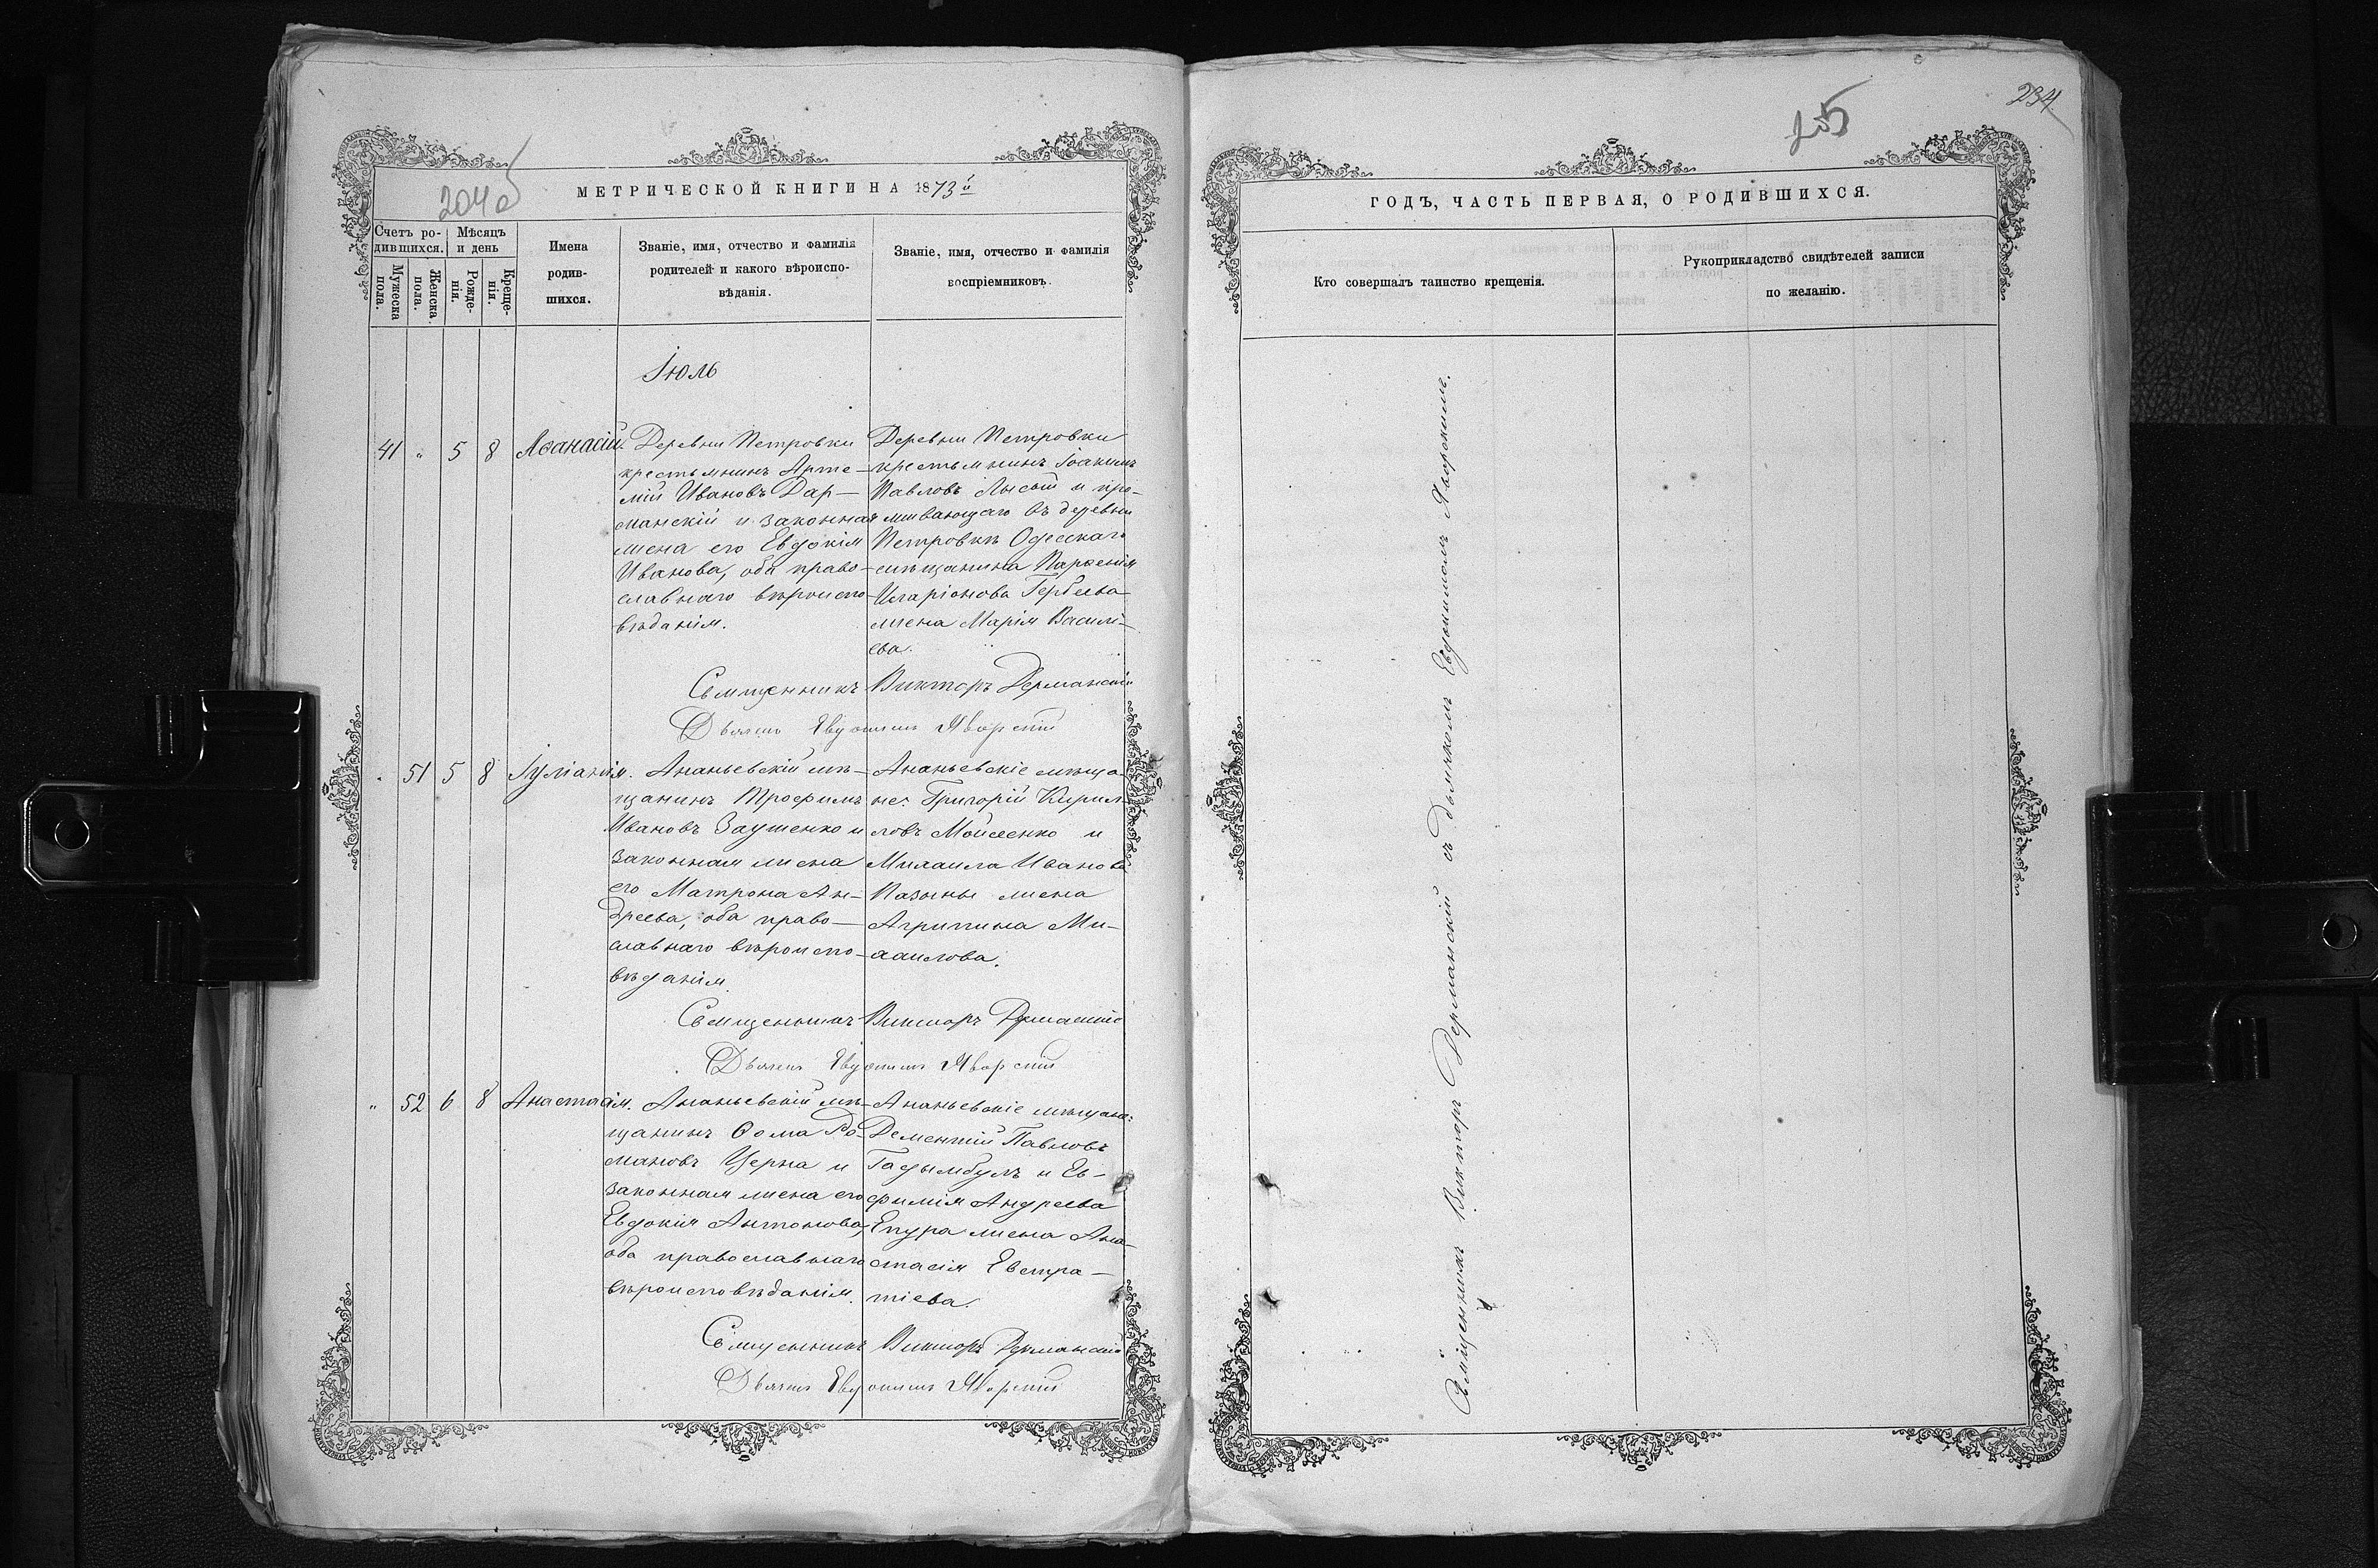 204 об
МЕТРИЧЕСКОЙ КНИГИ НА 1873й
Счетъ ро-
дившихся.
Мѣсяцъ
и день
Мужеска
пола.
Женска
пола.
Рожде-
нія.
Креще-
нія.
Имена
родив-
шихся.
Званіе, имя, отчество и фамилія
родителей и какого вѣроиспо-
вѣданія.
Званіе, имя, отчество и фамилія
воспріемниковъ.
Іюль
41 " 5 8 Аѳанасій
Деревни Петровки
крестьянинъ Арте-
мій Ивановъ Дар-
манскій и законная
жена его Евдокія
Иванова, оба право-
славнаго вѣроиспо-
вѣданія.
Деревни Петровки
крестьянинъ Іоакимъ
Павловъ Лысый и про-
живающаго въ деревни
Петровкѣ Одесскаго
мѣщанина Парѳенія
Иларіонова
жена Марія Василі-
ева.
Священникъ Викторъ Дерманскій
Дьячекъ Евдокимъ Яворскій
" 51 5 8 Іуліанія.
Ананьевскій мѣ-
щанинъ Трофимъ
Ивановъ Заушенко и
законная жена
его Матрона Ан-
дреева, оба право-
славнаго вѣроиспо-
вѣданія.
Ананьевскіе мѣща-
не: Григорій Кирил-
ловъ Мойсеенко и
Михаила Иванова
жена
Агрипина Ми-
хаилова.
Священникъ Викторъ Дерманскій
Дьячекъ Евдокимъ Яворскій
" 52 6 8 Анастасія.
Ананьевскій мѣ-
щанинъ Ѳома Ро-
мановъ Церна и
законная жена его
Евдокія Антонова,
оба православнаго
вѣроисповѣданія.
Ананьевскіе мѣщане:
Дементій Павловъ
и Ев-
фимія Андреева
Епура жена Ана-
стасія Евстра-
тіева.
Священникъ Викторъ Дерманскій
Дьячекъ Евдокимъ Яворскій
234
205
ГОДЪ, ЧАСТЬ ПЕРВАЯ, О РОДИВШИХСЯ.
Кто совершалъ таинство крещенія.
Рукоприкладство свидѣтелей записи
по желанію.
Священникъ Викторъ Дерманскій съ дьячкомъ Евдокимомъ Яворскимъ.